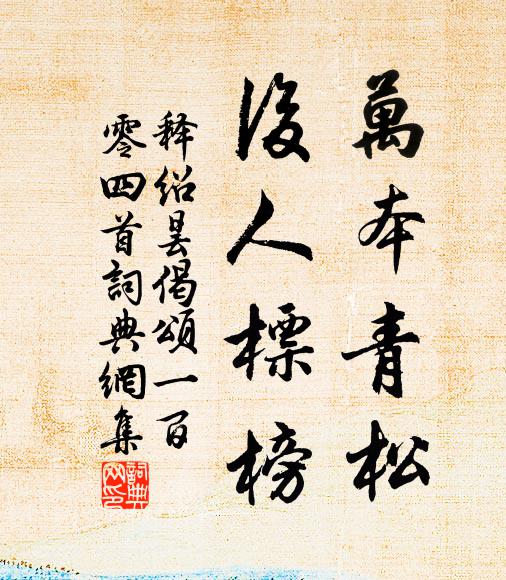 萬本青松
後人標榜
释紹曇偈頌一百
零四首詞典網集
詞典
网印